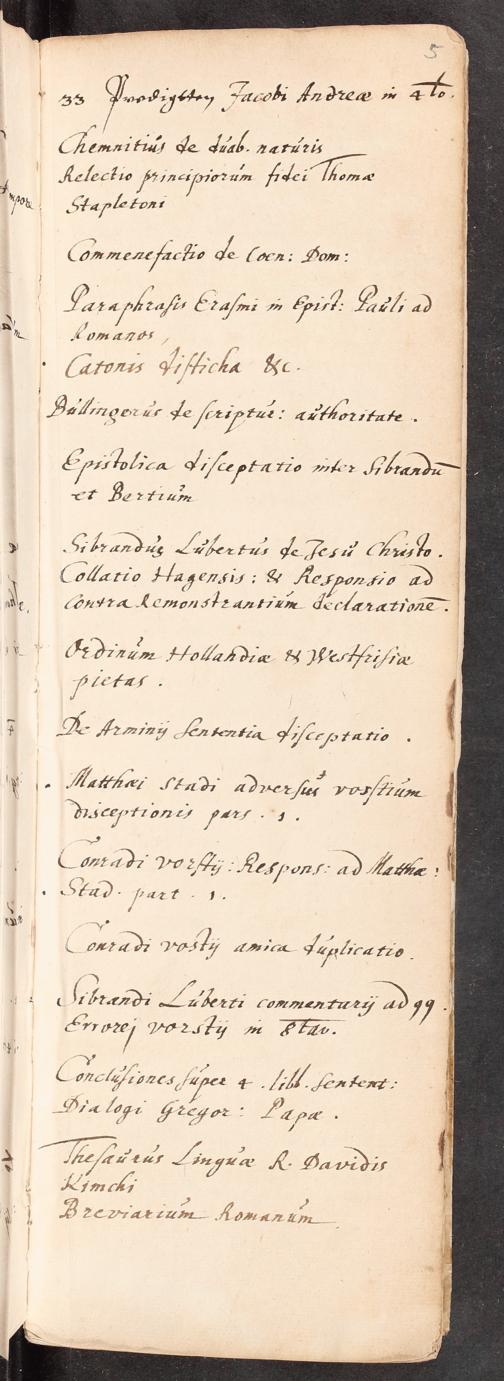 5
33 Predigtten Jacobi Andreæ in 4to.
Chemnitius de duab. naturis
Relectio principiorum fidei Thomæ
Stapletoni
Commenefactio de Coen: Dom:
Paraphrasis Erasmi in Epist: Pauli ad
Romanos,
Catonis disticha &c.
Bullingerus de scriptur: authoritate.
Epistolica disceptatio inter Sibrandū
et Bertium
Sibrandus Lubertus de Jesu Christo.
Collatio Hagensis: & Responsio ad
Contra Remonstrantium declarationē.
Ordinum Hollandiæ & Westfrisiæ
pietas.
De Arminij Sententia disceptatio.
Matthæi Stadi adversus vorstium
disceptionis pars. 1.
Conradi vorstij: Respons: ad Matthæ:
Stad. part. 1.
Conradi vostij amica duplicatio.
Sibrandi Luberti commentarij ad 99.
Errores vorstij in 8tav.
Conclusiones super 4. libb. Sentent:
Dialogi Gregor: Papæ.
Thesaurus Linguæ R. Davidis
Kimchi
Breviarium Romanum